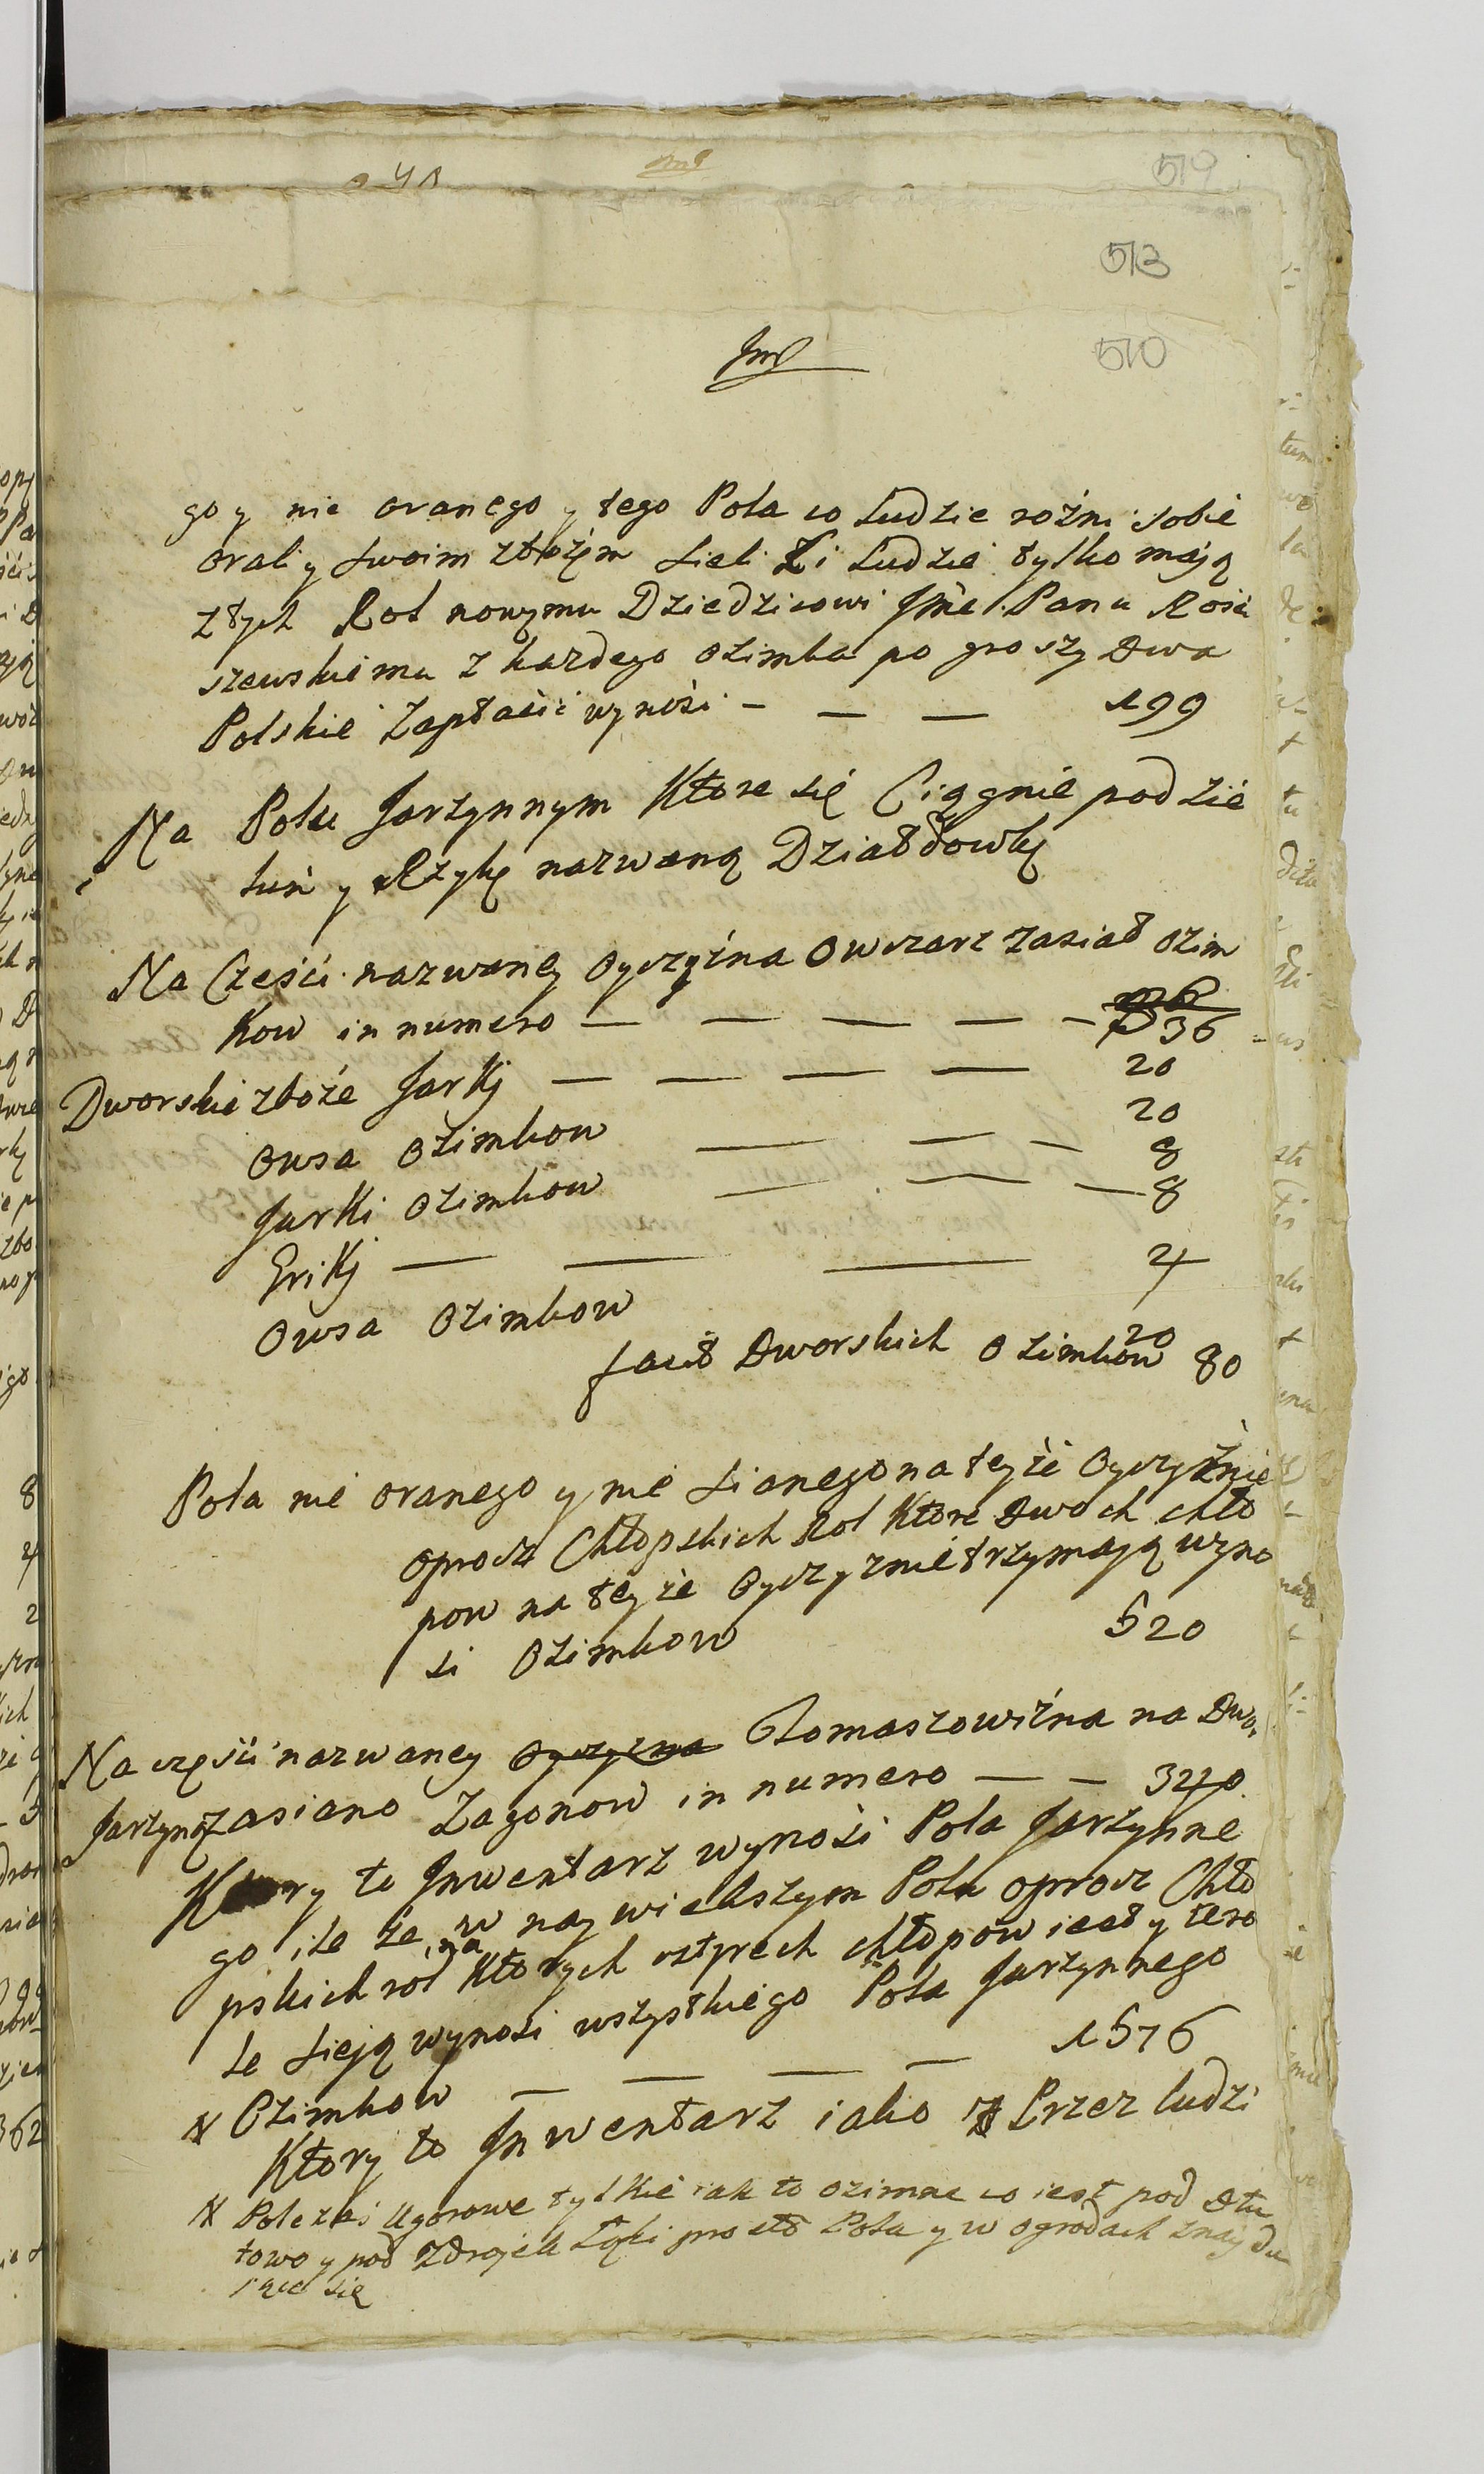 519
513
510
go y nie oranego y tego Pola co Ludzie rożni sobie
orali y swoim zbożem sieli Ci Ludzie tylko mają
z tych Rol nowymu Dziedzicowi Jmć Panu Rości
szewskiemu z kazdego ozimka po groszy dwa
Polskie Zapłacić wynosi — — — 199
Na Polu Jarzynnym Ktore się Ciągnie pod Zie
luń y Rzykę nazwaną Działdowkę
Na Części nazwaney Oyczyzna Owczarz zasiał ozim
kow in numero — — — — — 36
Dworskie zboże Jarki — — — — 20
Owsa Ozimkow — — — 20
Jarki Ozimkow — — — 8
Griki — — — 8
Owsa Ozimkow 4
facit Dworskich Ozimkow 80
Pola nie oranego y nie sianego na teyże Oyczyznie
oprocz Chłopskich Rol Ktore dwoch chło
pow na teyże Oyczyznie trzymają wyno
si Ozimkow 520
Na częsci nazwaney Oyczyzna Tomaszowizna na Dwor
Jarzyną zasiano Zagonow in numero — — 340
Ktory to Inwentarz wynosi Pola Jarzynne
go ile że w naywiekszym Polu oprocz Chło
pskich rol na Ktorych czterech chłopow iest y tera
se sieją wynosi wszystkiego Pola Jarzynnego
Ozimkow — — — — 1576
Ktory to Inwentarz iako Przez ludzi
Poletki Ugorowe tylkie iak to ozimne co iest pod dłu
towo y pod Zdroiek Łąki prosto Pola y w ogrodach znaydu
iące się